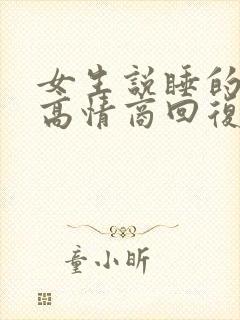 女生說睡的
高情商回復
童小昕